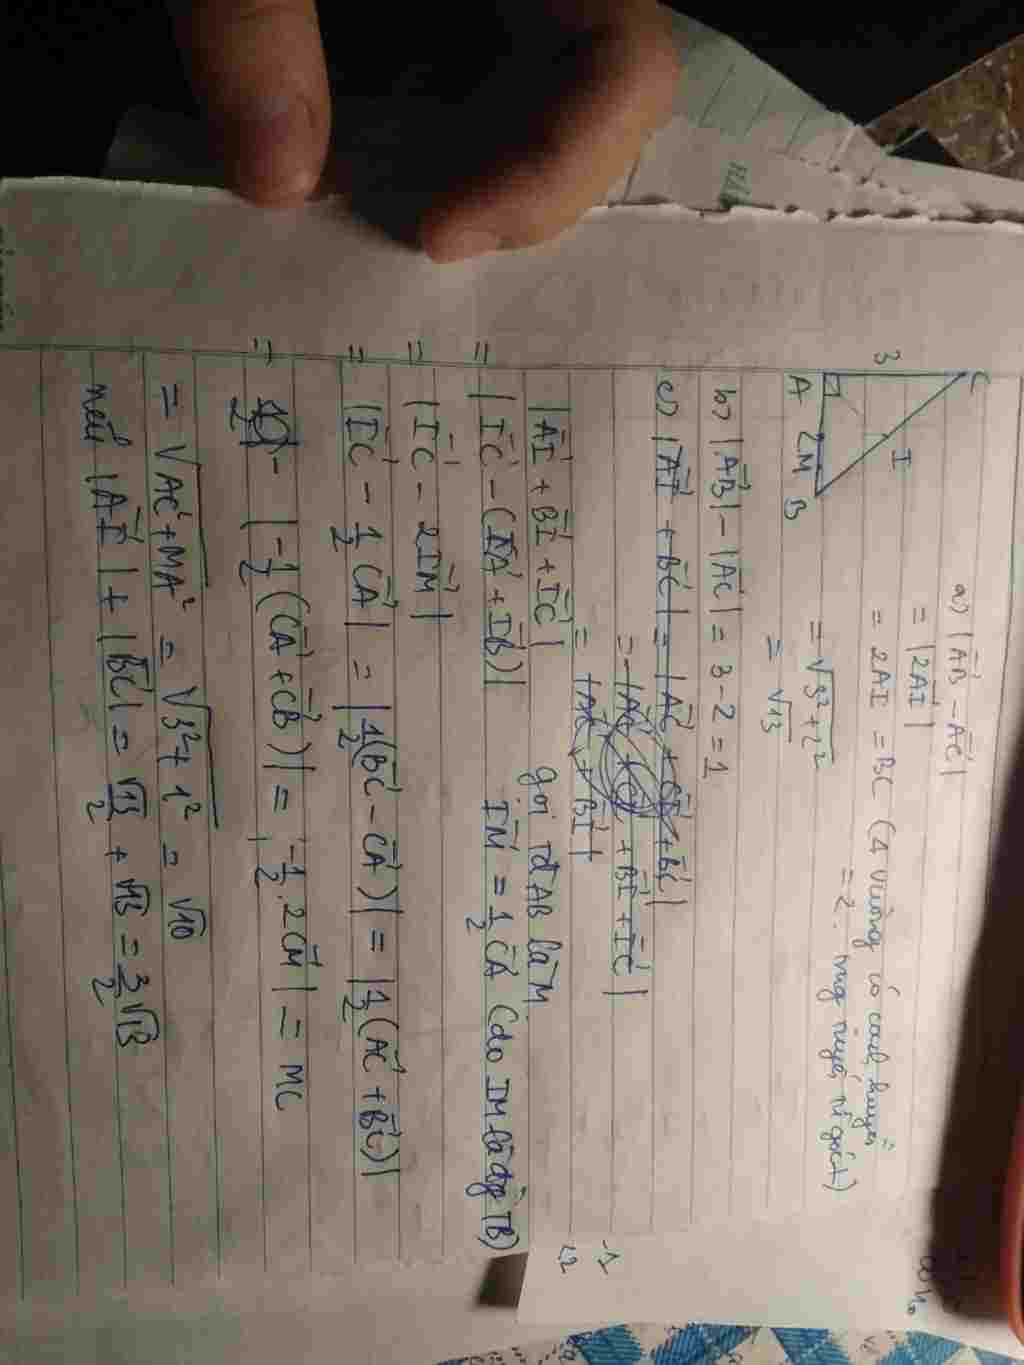 a) |AB⃗ - AC⃗|
= |2AI⃗|
= 2AI = BC (Δ vuông có cạnh huyền
= 2. trung tuyến từ góc t)
= √3²+2²
= √13
C
3
I
A 2 M B
b) |AB⃗| - |AC⃗| = 3-2 = 1
c) |AI⃗ + BC⃗| = |AC⃗ + CI⃗ + BC⃗|
+ BI⃗ + IC⃗|
= |AC⃗ + BI⃗|
|AI⃗ + BI⃗ + IC⃗| gọi tđ AB là M.
= |IC⃗ - (IA⃗ + IB⃗)| IM⃗ = 1/2 CA⃗ (do IM là đg TB)
= |IC⃗ - 2IM⃗|
= |IC⃗ - 1/2 CA⃗| = |1/2(BC⃗ - CA⃗)| = |1/2(AC⃗ + BC⃗)|
= |-1/2(CA⃗ + CB⃗)| = |-1/2.2CM⃗| = MC
= √AC²+MA² = √3²+1² = √10
nếu |AI⃗| + |BC⃗| = √13/2 + √13 = 3/2 √13
-1